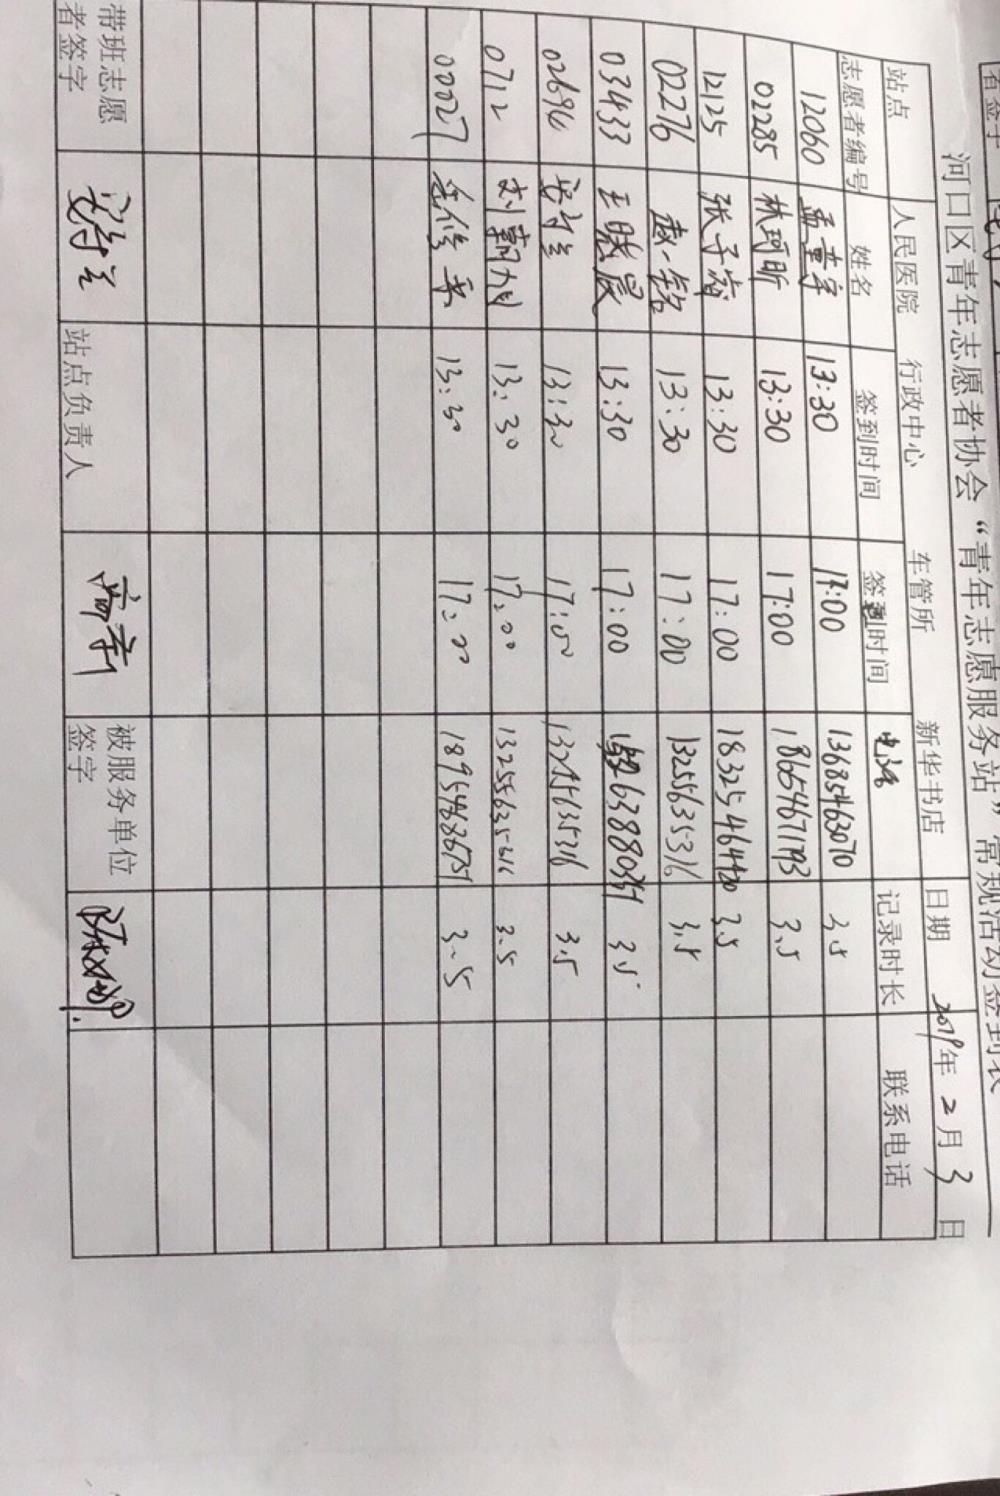 河口区青年志愿者协会“青年志愿服务站”常规活动签到表
站点 人民医院 行政中心 车管所 新华书店 日期 2019年2月3日
志愿者编号 姓名 签到时间 签到时间 电话 记录时长 联系电话
12060 13:30 17:00 13685463070 3.5
02285 林珂昕 13:30 17:00 18654671793 3.5
12125 张子 13:30 17:00 18325464420 3.5
02276 一铭 13:30 17:00 13255635316 3.5
03433 王晓晨 13:30 17:00 3.5
02696 13:30 17:00 13255635316 3.5
0712 刘朝 13:30 17:00 13255635316 3.5
00027 13:30 17:00 18954686751 3.5
带班志愿者签字 站点负责人 被服务单位签字